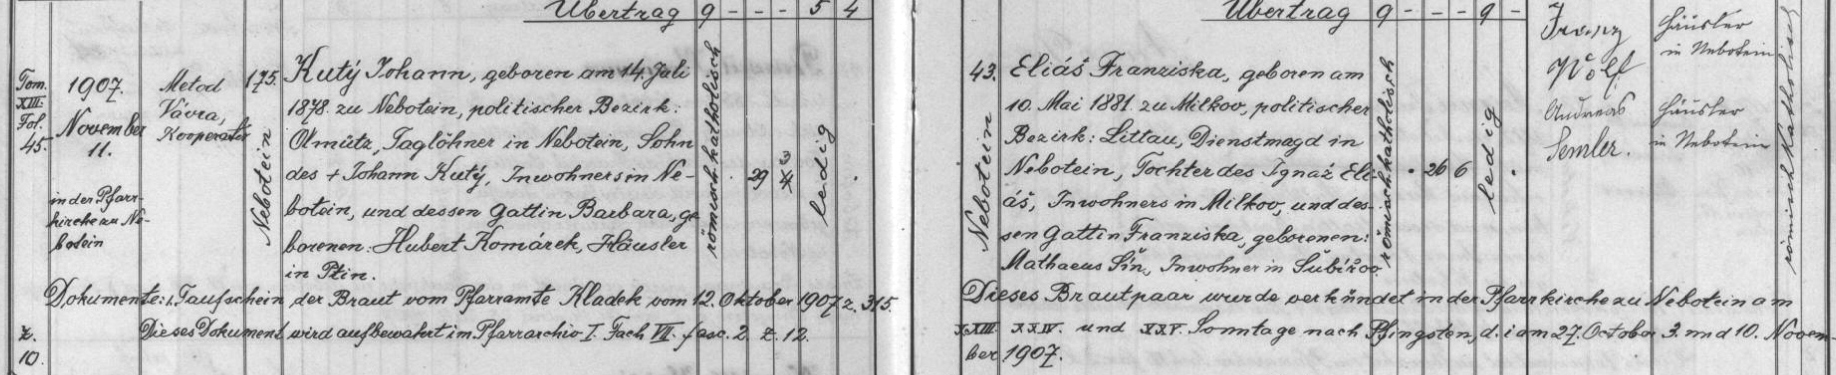 Übertrag 9 - - - 5 4
Tom.
XIII.
Fol.
45.
1907.
November
11.
in der Pfarr-
kirche zu Ne-
botein
Metod
Vávra,
Kooperator
175.
Nebotein
Kutý Johann, geboren am 14. Juli
1878. zu Nebotein, politischer Bezirk:
Olmütz, Taglöhner in Nebotein, Sohn
des + Johann Kutý, Inwohners in Ne-
botein, und dessen Gattin Barbara, ge-
borenen: Hubert Komárek, Häusler
in Ptin.
römisch katholisch
29
3
4
ledig
Dokumente: 1. Taufschein der Braut vom Pfarramte Kladek vom 12. Oktober 1907 z. 315.
z.
10.
Dieses Dokument wird aufbewahrt im Pfarrarchiv I. Fach VII. fasc. 2. z. 12.
Übertrag 9 - - - 9 -
43.
Nebotein
Eliáš Franziska, geboren am
10. Mai 1881. zu Milkov, politischer
Bezirk: Littau, Dienstmagd in
Nebotein, Tochter des Ignaz Eli-
áš, Inwohners in Milkov, und des-
sen Gattin Franziska, geborenen:
Mathaeus Šín, Inwohner in Šubířov.
römisch katholisch
26 6
ledig
Franz
Wolf
Andreas
Semler.
Häusler
in Nebotein
Häusler
in Nebotein
römisch katholisch
Dieses Brautpaar wurde verkündet in der Pfarrkirche zu Nebotein am
XXIII. XXIV. und XXV. Sonntage nach Pfingsten, d. i am 27. October 3. und 10. Novem-
ber 1907.